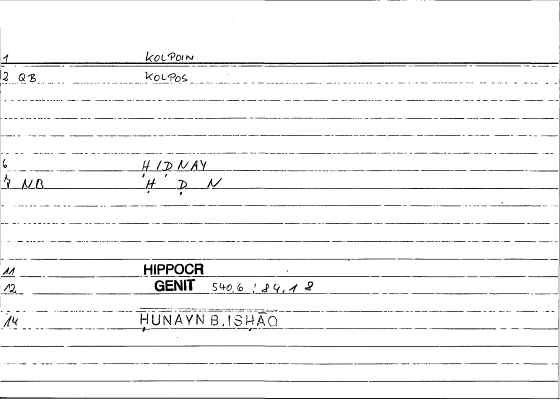 1 KOLPOIN
2 QB KOLPOS
6 ḤIḌNAY
7 NB Ḥ Ḍ N
11 HIPPOCR
12 GENIT 540,6 / 84,18
14 ḤUNAYN B. ISḤĀQ